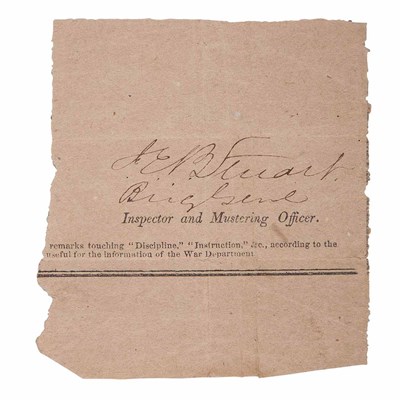 J.E.B Stuart.
Brig Genl
Inspector and Mustering Officer.
remarks touching "Discipline," "Instruction," &c., according to the
useful for the information of the War Department